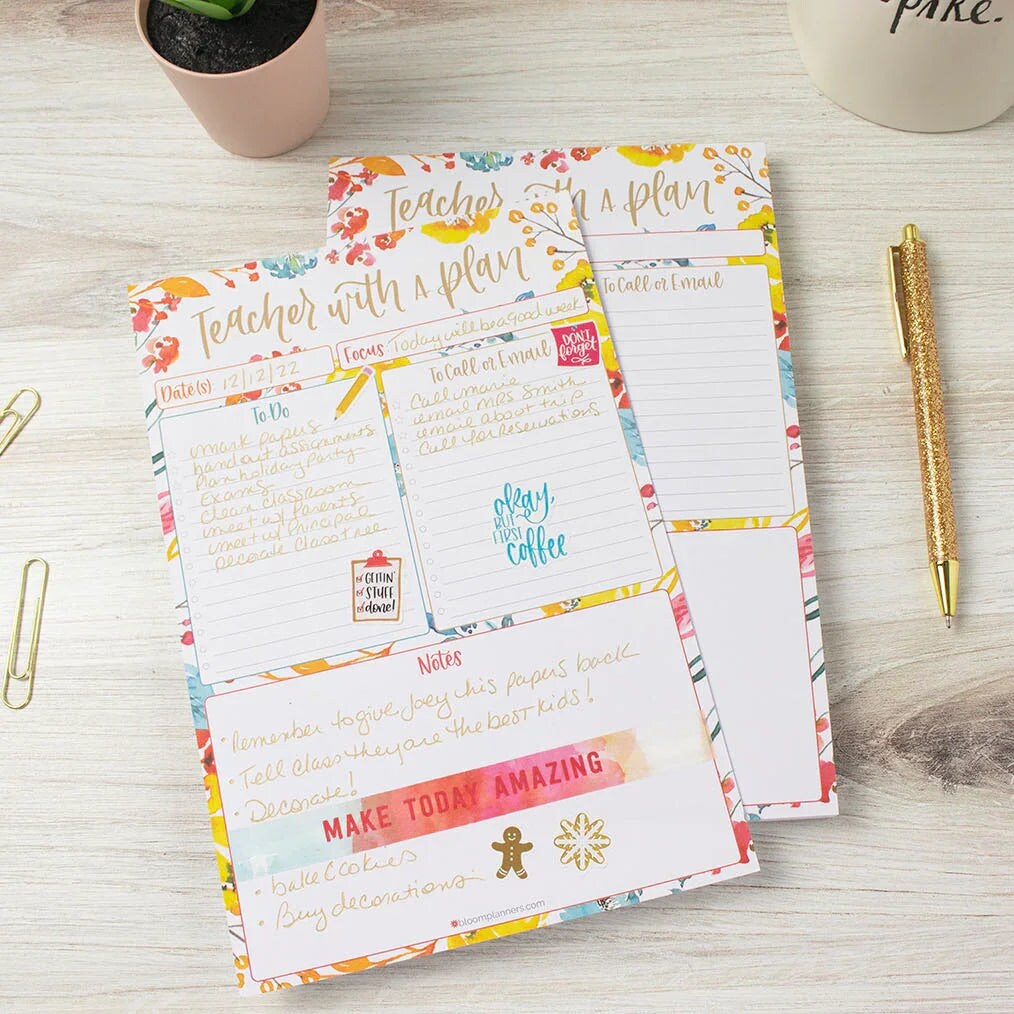 pike.
Teacher with a plan
To Call or Email
Teacher with a plan
Date(s) 12/12/22
Focus Today will be a good week
To-Do
mark papers
handout assignments
Plan holiday Party
Exams
Clean Classroom
meet w/ Parents
meet w/ Principal
Decorate Class tree
GETTIN'
STUFF
done!
To Call or Email
DON'T
forget
Call marie
email MRS Smith
email about trip
Call for Reservations
okay,
BUT
FIRST
coffee
Notes
• Remember to give Joey his papers back
• Tell class they are the best kids!
• Decorate!
MAKE TODAY AMAZING
• bake Cookies
• Buy decorations
bloomplanners.com